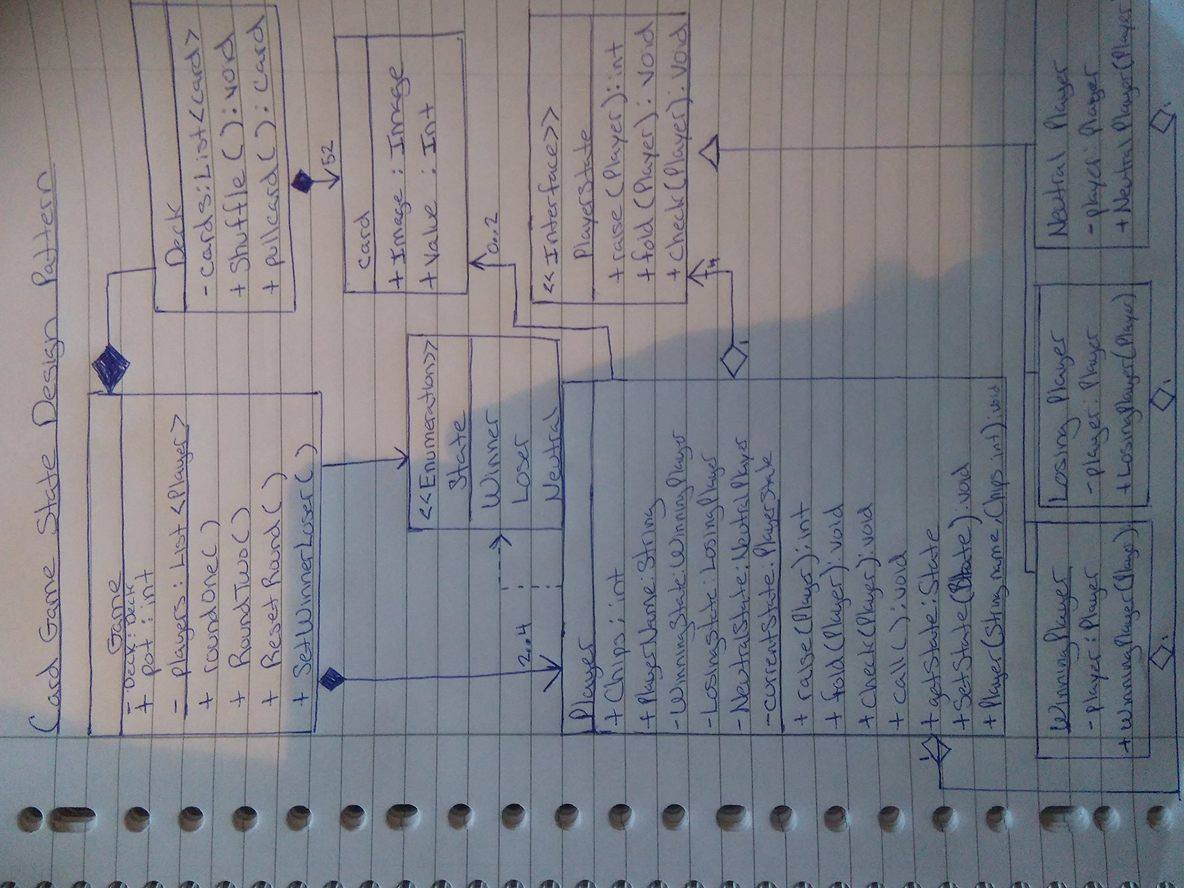 Card Game State Design Pattern
Game
- Deck: Deck
+ pot : int
- players: List <Player>
+ roundOne( )
+ RoundTwo( )
+ Reset Round( )
+ SetWinnerLoser( )
Deck
- cards: List<card>
+ Shuffle ( ) : void
+ pullcard ( ) : Card
52
card
+ Image : Image
+ Value : Int
0..2
<<Enumeration>>
State
Winner
Loser
Neutral
<<Interface>>
PlayerState
+ raise (Player): int
+ fold (Player) : void
+ Check (Player) : void
2..4
Player
+ Chips : int
+ PlayerName: String
- WinningState: WinningPlayer
- LosingState: LosingPlayer
- NeutralState: NeutralPlayer
- currentState: PlayerState
+ raise (Player): int
+ fold (Player): void
+ Check (Player): void
+ call ( ) : void
+ getState: State
+ SetState (State): void
+ Player (String name, Chips int): void
1
1
WinningPlayer
- Player: Player
+ WinningPlayer (Player)
1
Losing Player
- player: Player
+ LosingPlayer (Player)
1
Neutral Player
- player: Player
+ Neutral Player (Player
1